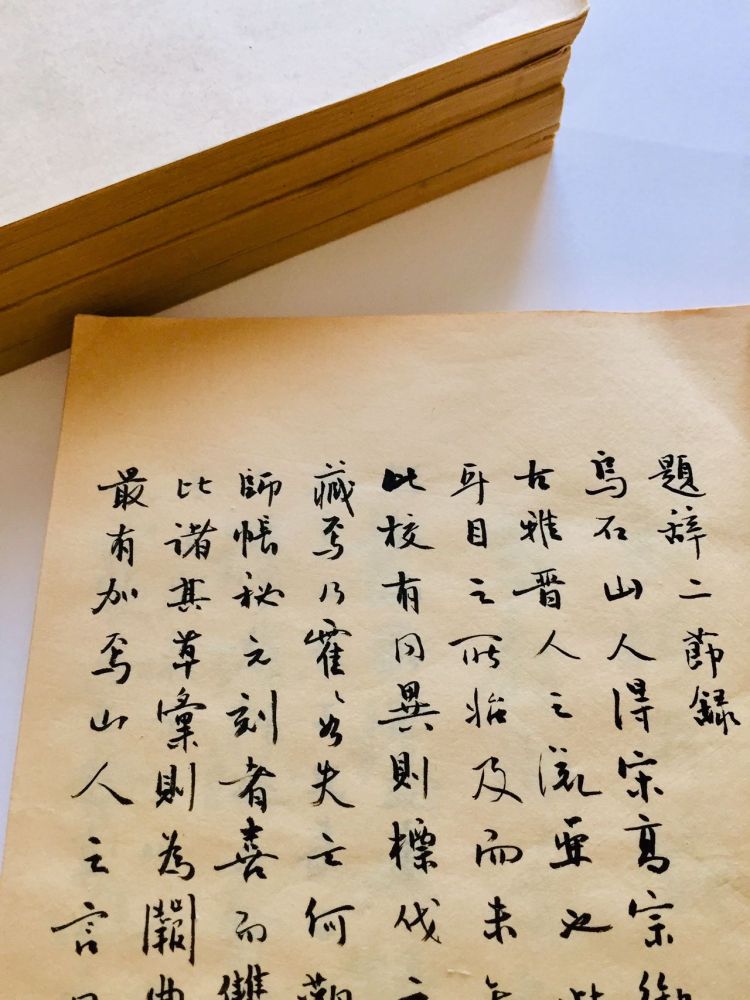 題辞二節録
烏石山人得宋高宗
古雅晋人之流亜也
耳目之所及而未
此校有同異則標
藏焉乃霍〻如失之何
師帳秘之刻者喜而
比諸其草稾則為
最有加焉山人之言